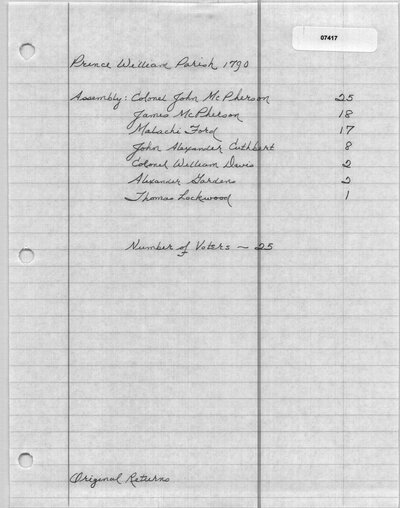 07417
Prince William Parish 1790
Assembly: Colonel John McPherson 25
James McPherson 18
Malachi Ford 17
John Alexander Cuthbert 8
Colonel William Davis 2
Alexander Gardens 2
Thomas Lockwood 1
Number of Voters - 25
Original Returns